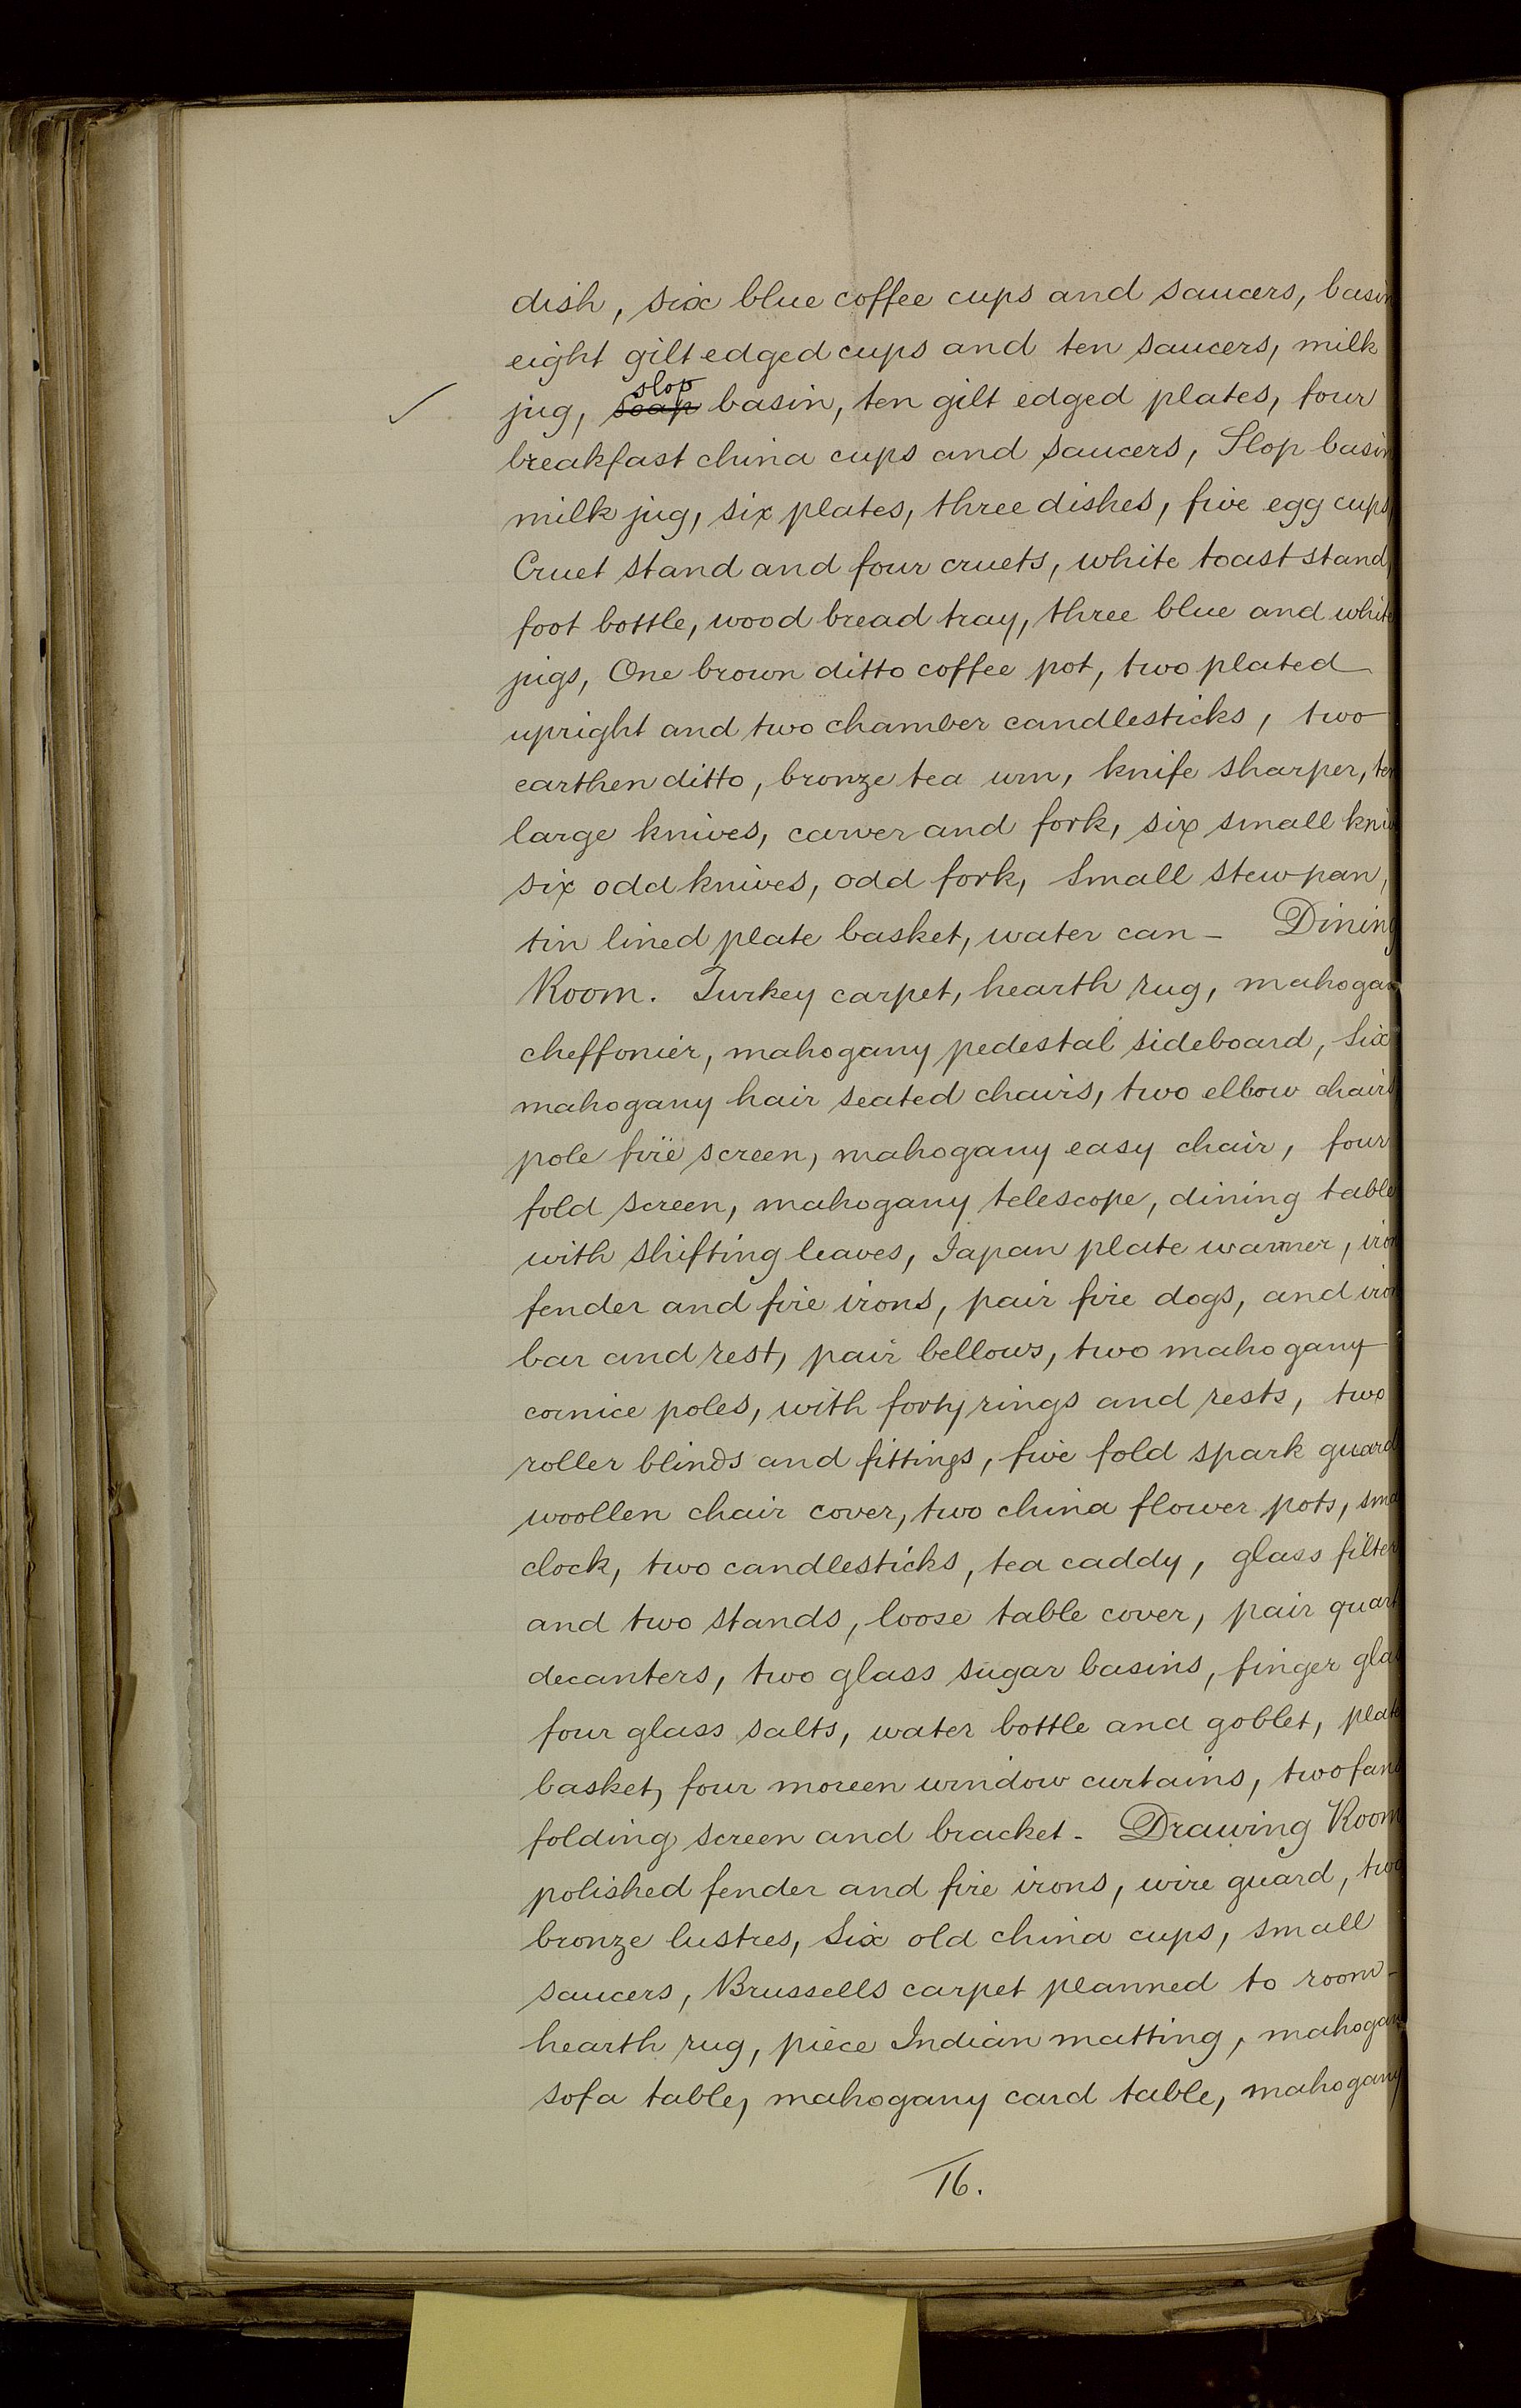 dish, six blue coffee cups and saucers, basin
eight gilt edged cups and ten saucers, milk
slop
jug, soap basin, ten gilt edged plates, four
breakfast china cups and saucers, Slop basin
milk jug, six plates, three dishes, five egg cups,
Cruet stand and four cruets, white toast stand,
foot bottle, wood bread tray, three blue and white
jugs, One brown ditto coffee pot, two plated
upright and two chamber candlesticks, two
earthen ditto, bronze tea urn, knife sharper, ten
large knives, carver and fork, six small kniv
six odd knives, odd fork, small stewpan,
tin lined plate basket, water can - Dining
Room. Turkey carpet, hearth rug, mahogan
cheffonier, mahogany pedestal sideboard, six
mahogany hair seated chairs, two elbow chairs
pole fire screen, mahogany easy chair, four
fold screen, mahogany telescope, dining table
with shifting leaves, Japan plate warmer, iron
fender and fire irons, pair fire dogs, and iron
bar and rest, pair bellows, two mahogany
cornice poles, with forty rings and rests, two
roller blinds and fittings, five fold spark guard
woollen chair cover, two china flower pots, sma
clock, two candlesticks, tea caddy, glass filter
and two stands, loose table cover, pair quart
decanters, two glass sugar basins, finger glas
four glass salts, water bottle and goblet, plate
basket, four moreen window curtains, two fans
folding screen and bracket - Drawing Room
polished fender and fire irons, wire guard, two
bronze lustres, six old china cups, small
saucers, Brussells carpet planned to room -
hearth rug, piece Indian matting, mahogan
sofa table, mahogany card table, mahogany
16.